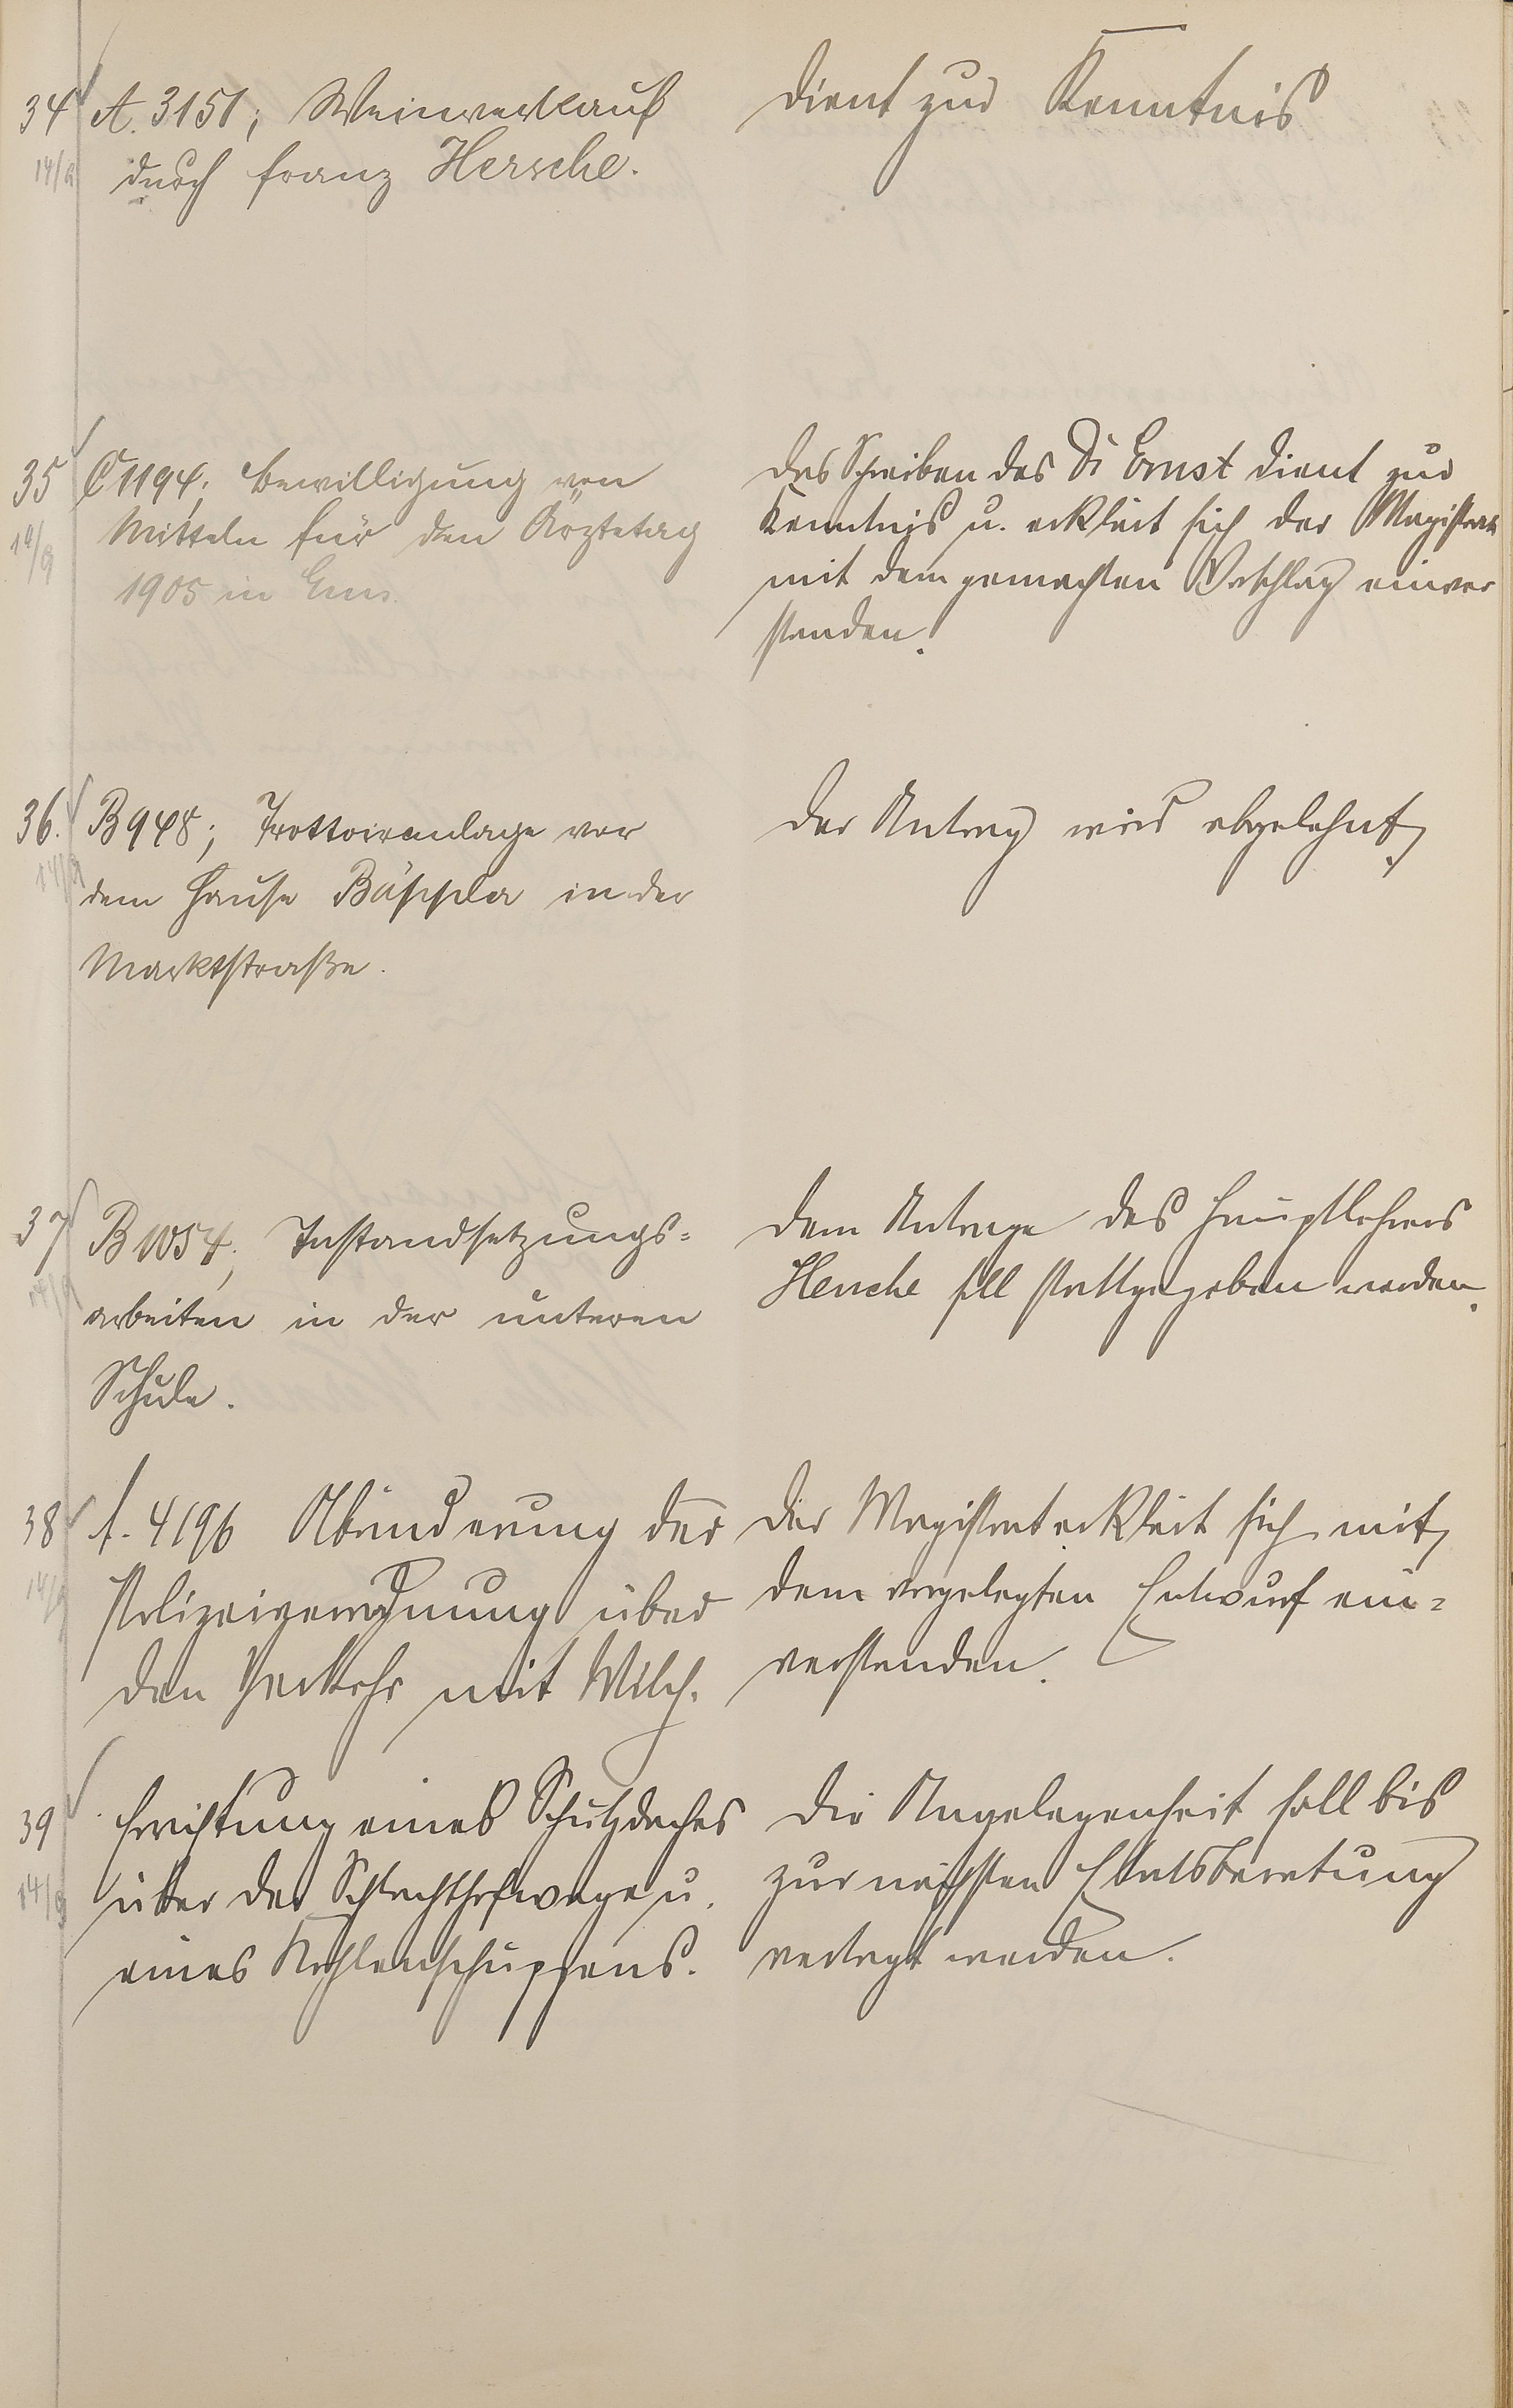 34 A. 3151; Weinverkauf
14/9 durch Franz Hersche.
dient zur Kenntnis
35 C 1194; Bewilligung von
14/9 Mitteln für den Ärztetag
1905 in Ems.
Das Schreiben des Dr Ernst dient zur
Kenntnis u. erklärt sich der Magistrat
mit dem gemachten Vorschlag einver
standen.
36. B 948; Trottoiranlage vor
14/9 dem Hause Bäppler in der
Marktstraße.
Der Antrag wird abgelehnt.
37 B 1054; Instandsetzungs=
14/9 arbeiten in der unteren
Schule.
Dem Antrage des Hauptlehrers
Henche soll stattgegeben werden.
38 A. 4196 Abänderung der
14/9 Polizeiverordnung über
den Verkehr mit Milch.
Der Magistrat erklärt sich mit
dem vorgelegten Entwurf ein=
verstanden.
39 Errichtung eines Schutzdaches
14/9 über der Schlachthofwage u.
eines Kohlenschuppens.
Die Angelegenheit soll bis
zur nächsten Etatsberatung
vertagt werden.